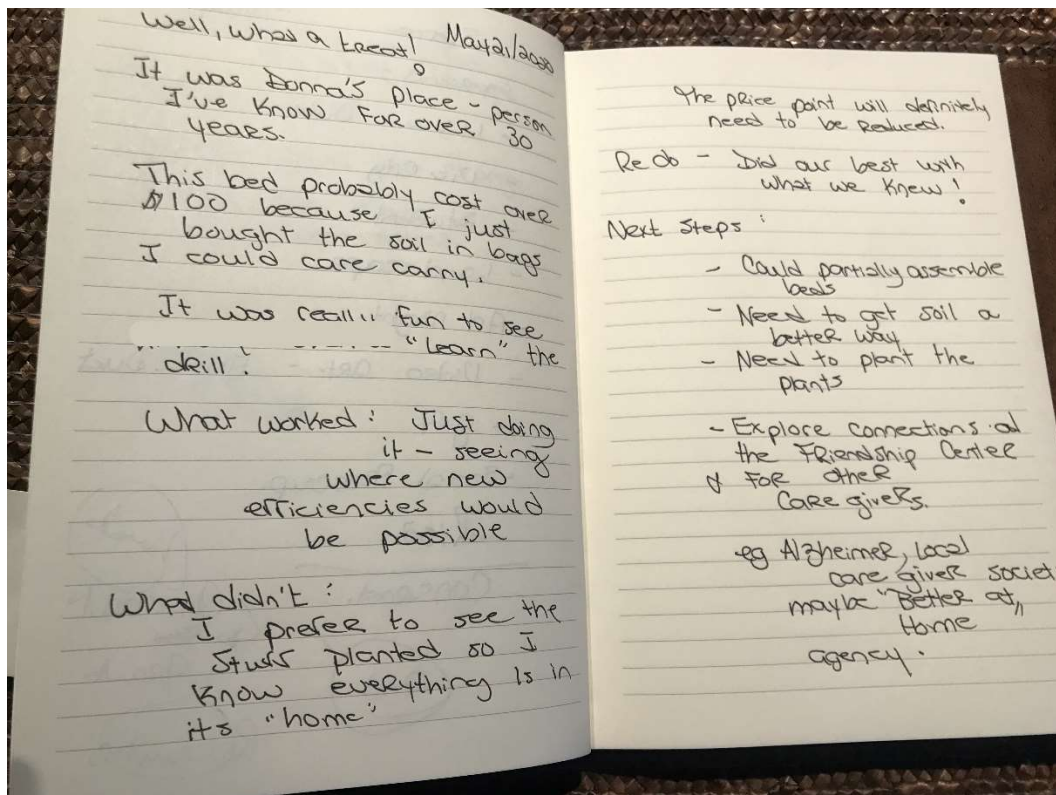 Well, what a treat!
May 21/2020
It was Donna's place - person
I've know for over 30
years.
This bed probably cost over
$100 because I just
bought the soil in bags
I could care carry.
It was fun to see
"learn" the
drill!
What worked: Just doing
it - seeing
where new
efficiencies would
be possible
What didn't:
I prefer to see the
stuff planted so I
know everything is in
its "home"
The price point will definitely
need to be reduced.
Redo - Did our best with
what we knew!
Next Steps:
- Could partially assemble
beds
- Need to get soil a
better way
- Need to plant the
plants
- Explore connections at
the Friendship Center
& for other
care givers.
eg Alzheimer, local
care giver societ
maybe "Better at
Home"
agency.